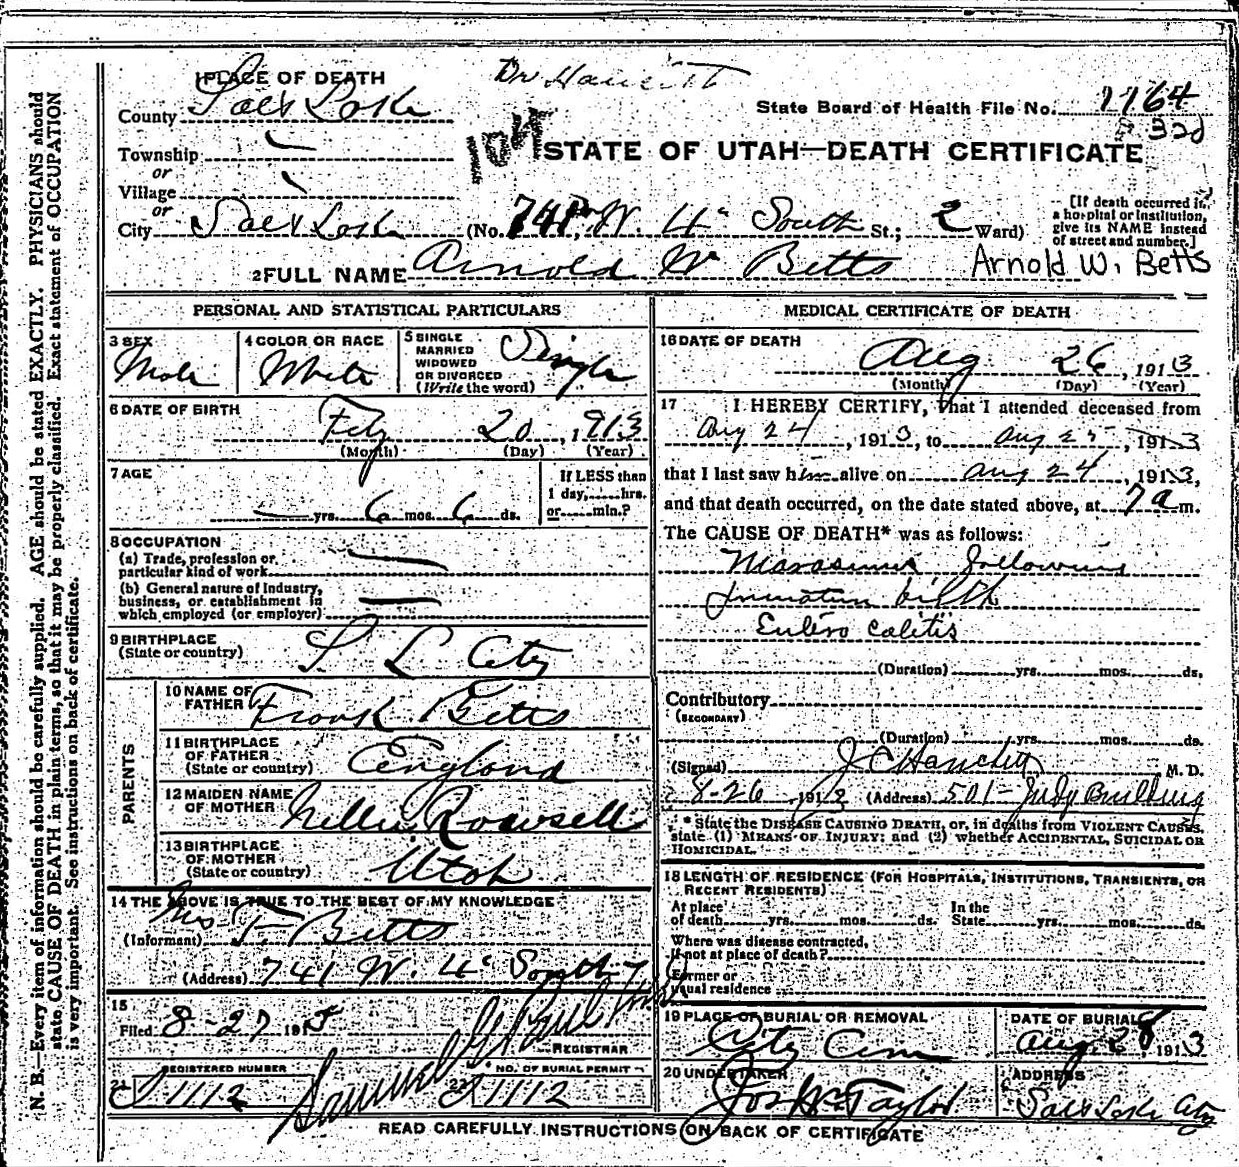 1 PLACE OF DEATH
County Salt Lake
Township
or
Village
or
City Salt Lake (No. 741 W. 4" South St.; 2 Ward)
State Board of Health File No. 1164
STATE OF UTAH—DEATH CERTIFICATE
[If death occurred in
a hospital or institution,
give its NAME instead
of street and number.]
2 FULL NAME Arnold W Betts Arnold W. Betts
PERSONAL AND STATISTICAL PARTICULARS
3 SEX Male
4 COLOR OR RACE White
5 SINGLE MARRIED WIDOWED OR DIVORCED (Write the word) Single
6 DATE OF BIRTH
Feby 20, 1913
(Month) (Day) (Year)
7 AGE
yrs. 6 mos. 6 ds.
If LESS than
1 day, hrs.
or min.?
8 OCCUPATION
(a) Trade, profession or
particular kind of work
(b) General nature of industry,
business, or establishment in
which employed (or employer)
9 BIRTHPLACE
(State or country) S L City
PARENTS
10 NAME OF
FATHER Frank Betts
11 BIRTHPLACE
OF FATHER
(State or country) England
12 MAIDEN NAME
OF MOTHER Nellie Rowsell
13 BIRTHPLACE
OF MOTHER
(State or country) Utah
14 THE ABOVE IS TRUE TO THE BEST OF MY KNOWLEDGE
(Informant) Mrs F. Betts
(Address) 741 W. 4" South
15
Filed 8-27 1913
REGISTRAR
REGISTERED NUMBER
21 1112
NO. OF BURIAL PERMIT
22 1112
MEDICAL CERTIFICATE OF DEATH
16 DATE OF DEATH
Aug 26, 1913
(Month) (Day) (Year)
17 I HEREBY CERTIFY, that I attended deceased from
Aug 24, 1913, to Aug 25, 1913
that I last saw him alive on Aug 24, 1913,
and that death occurred, on the date stated above, at 7 a m.
The CAUSE OF DEATH* was as follows:
Marasmus following
premature birth
Entero colitis
(Duration) yrs. mos. ds.
Contributory
(SECONDARY)
(Duration) yrs. mos. ds.
(Signed) J C Hanchett M. D.
8-26, 1913 (Address) 501 - Judge Building
* State the DISEASE CAUSING DEATH, or, in deaths from VIOLENT CAUSES,
state (1) MEANS OF INJURY; and (2) whether ACCIDENTAL, SUICIDAL OR
HOMICIDAL.
18 LENGTH OF RESIDENCE (FOR HOSPITALS, INSTITUTIONS, TRANSIENTS, OR
RECENT RESIDENTS)
At place In the
of death yrs. mos. ds. State yrs. mos. ds.
Where was disease contracted,
if not at place of death?
Former or
usual residence
19 PLACE OF BURIAL OR REMOVAL
City Cem
DATE OF BURIAL
Aug. 28 1913
20 UNDERTAKER
Jos Wm Taylor
ADDRESS
Salt Lake City
READ CAREFULLY INSTRUCTIONS ON BACK OF CERTIFICATE
N. B.—Every item of information should be carefully supplied. AGE should be stated EXACTLY. PHYSICIANS should
state CAUSE OF DEATH in plain terms, so that it may be properly classified. Exact statement of OCCUPATION
is very important. See instructions on back of certificate.